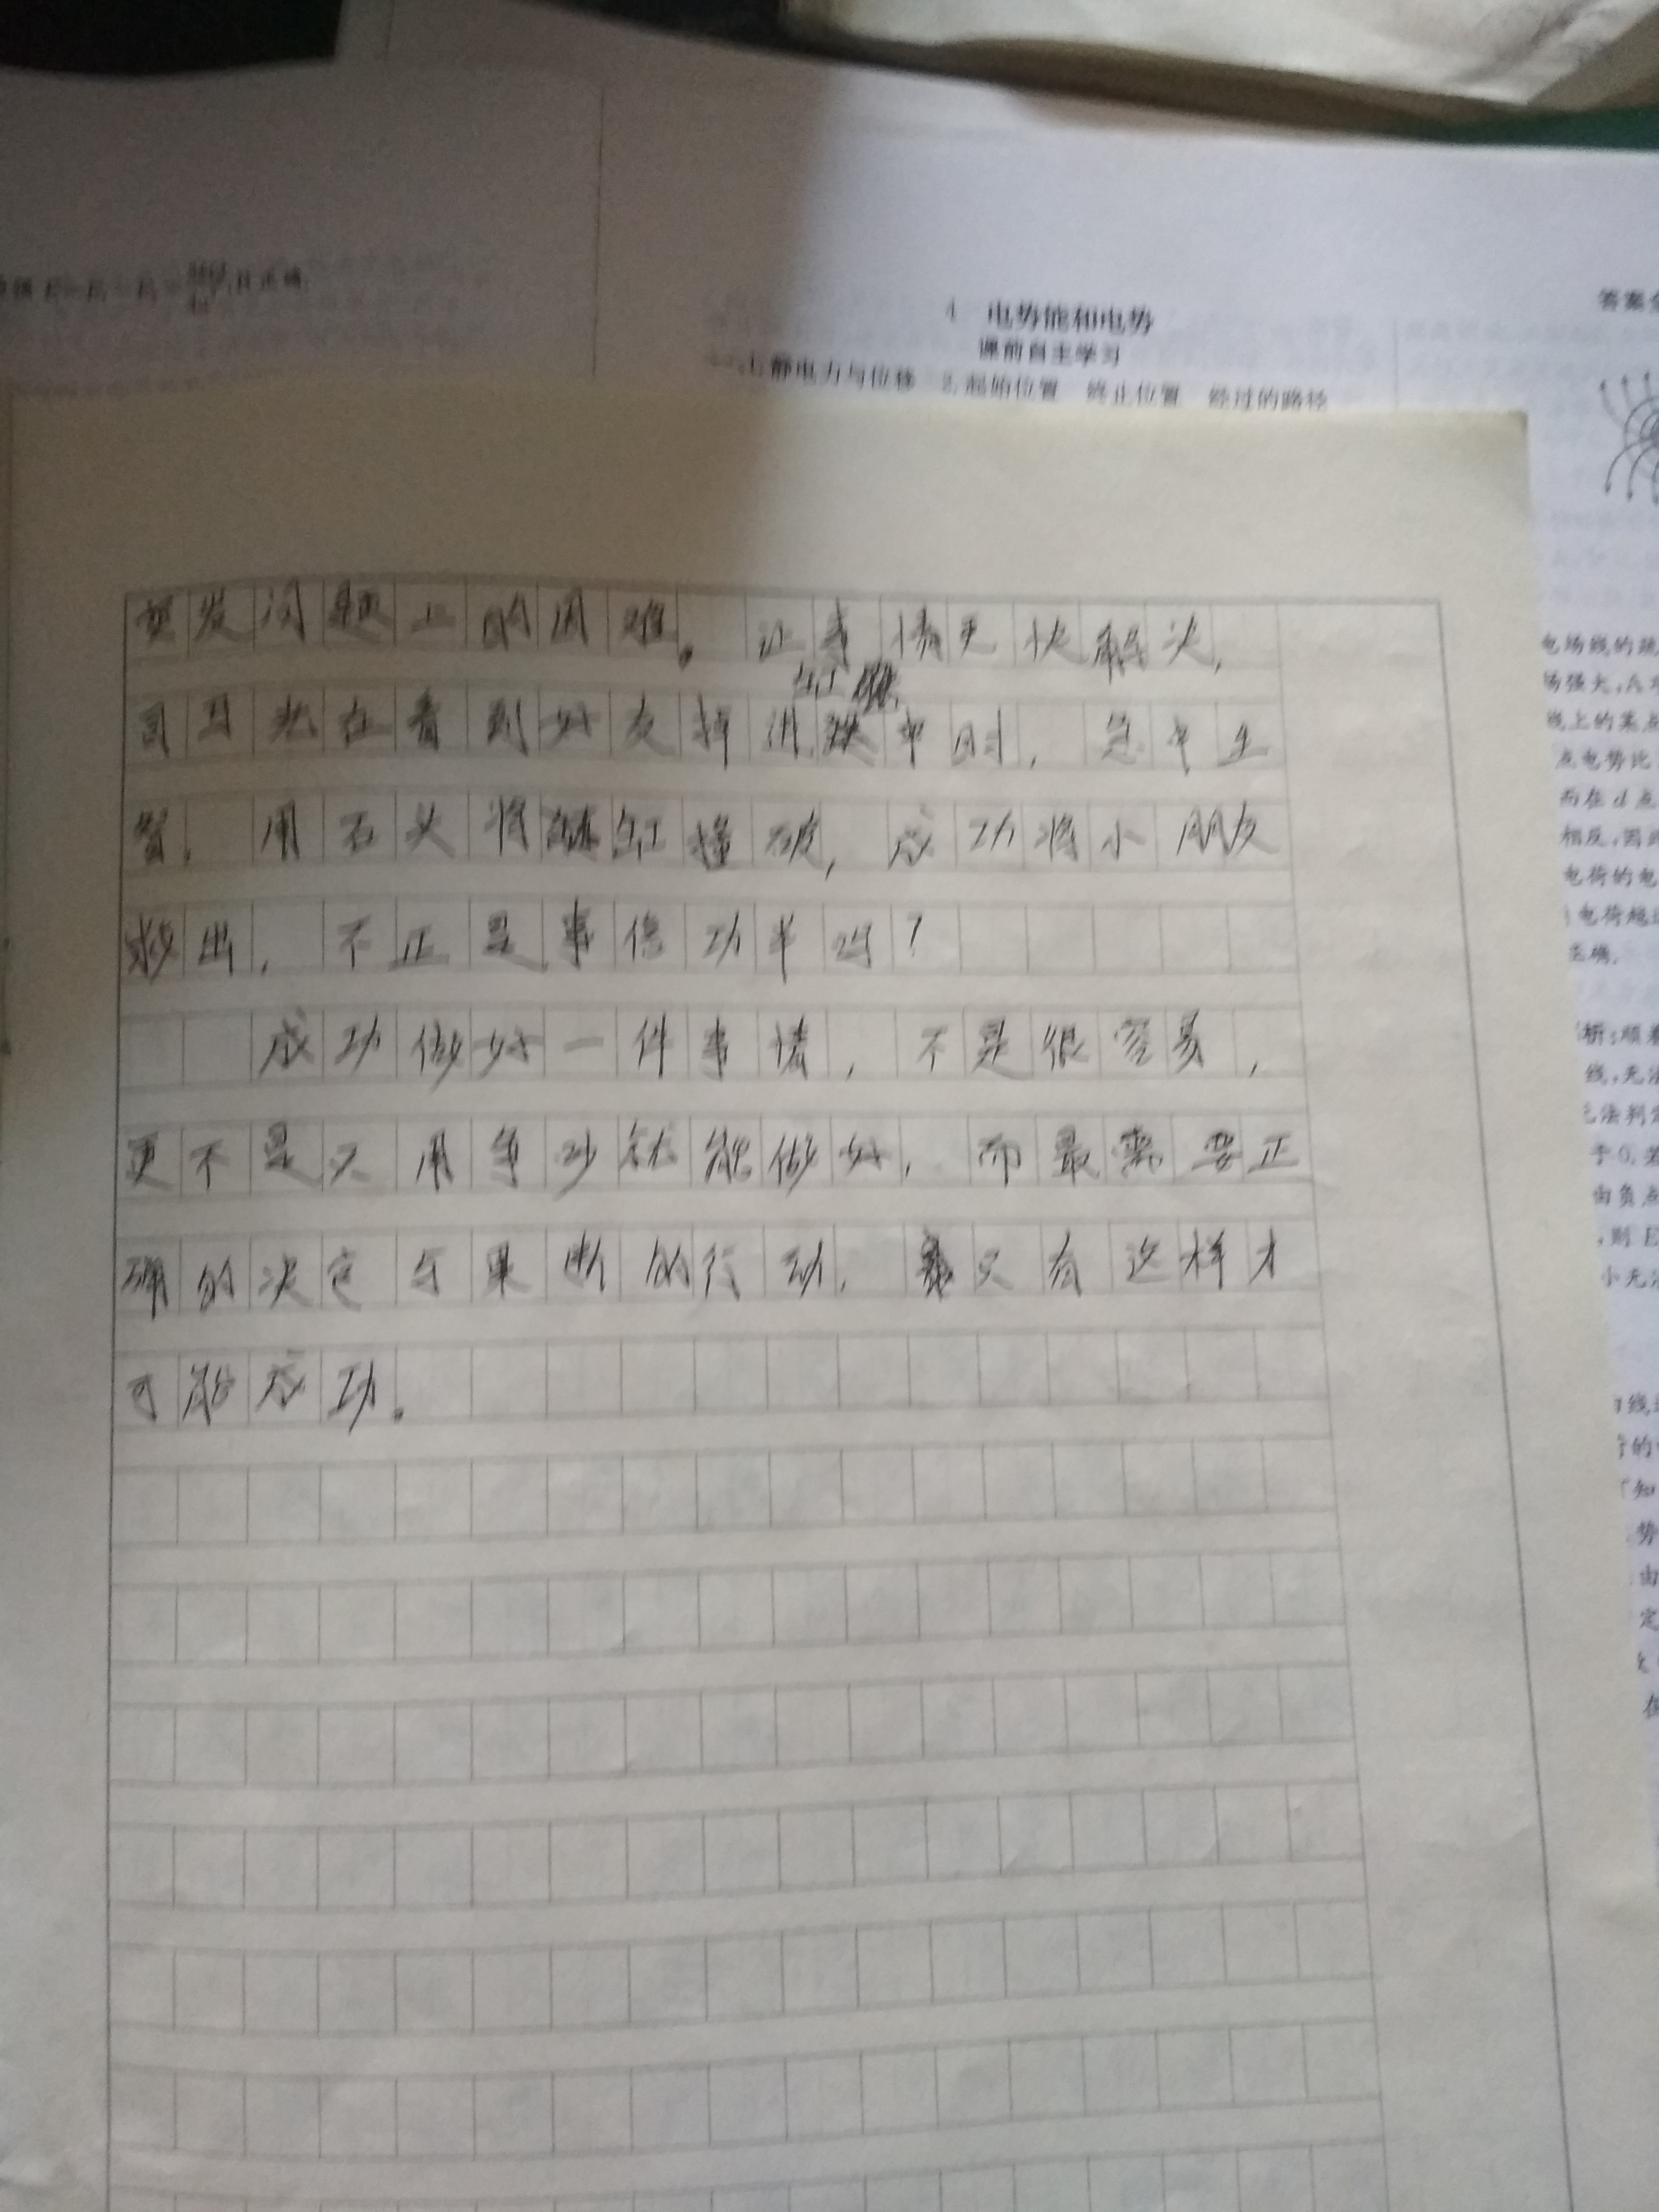 4 电势能和电势
课前自主学习
一、1.静电力与位移 2.起始位置 终止位置 经过的路径
发问题上的困难。让事情更快解决,
缸
司马光在看到好友掉进 中时,急中生
智,用石头将 缸撞破,成功将小朋友
救出,不正是事倍功半吗?
成功做好一件事情,不是很容易,
更不是只用争吵就能做好,而最需要正
确的决定与果断的行动, 只有这样才
可能成功。
答案
电场线的疏
场强大,A
线上的某点
点电势比
而在d点
相反,因此
电荷的电
电荷越
正确.
析:顺着
线,无法
无法判定
于0,若
由负点
,则E
小无法